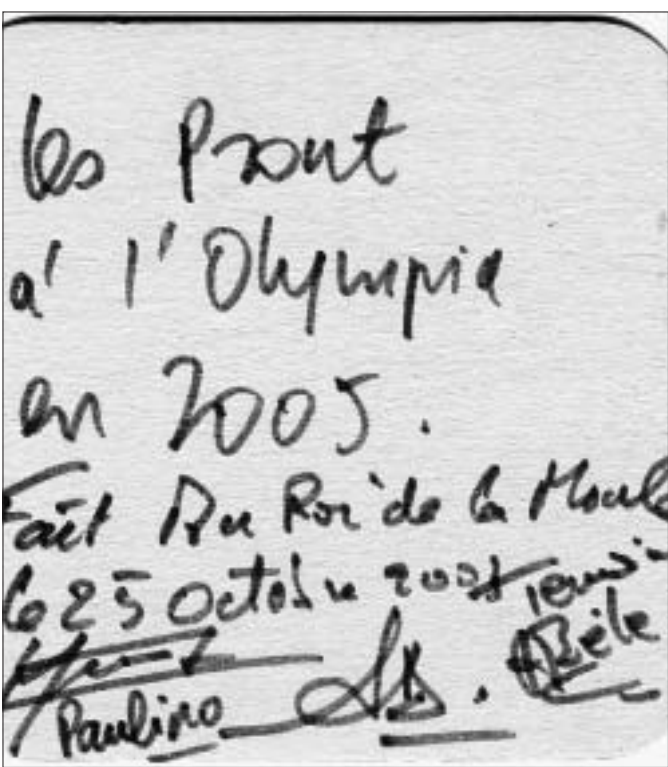 les Prout
à l'Olympia
en 2005.
Fait Au Roi de la Moul
le 25 Octobre
Paulino